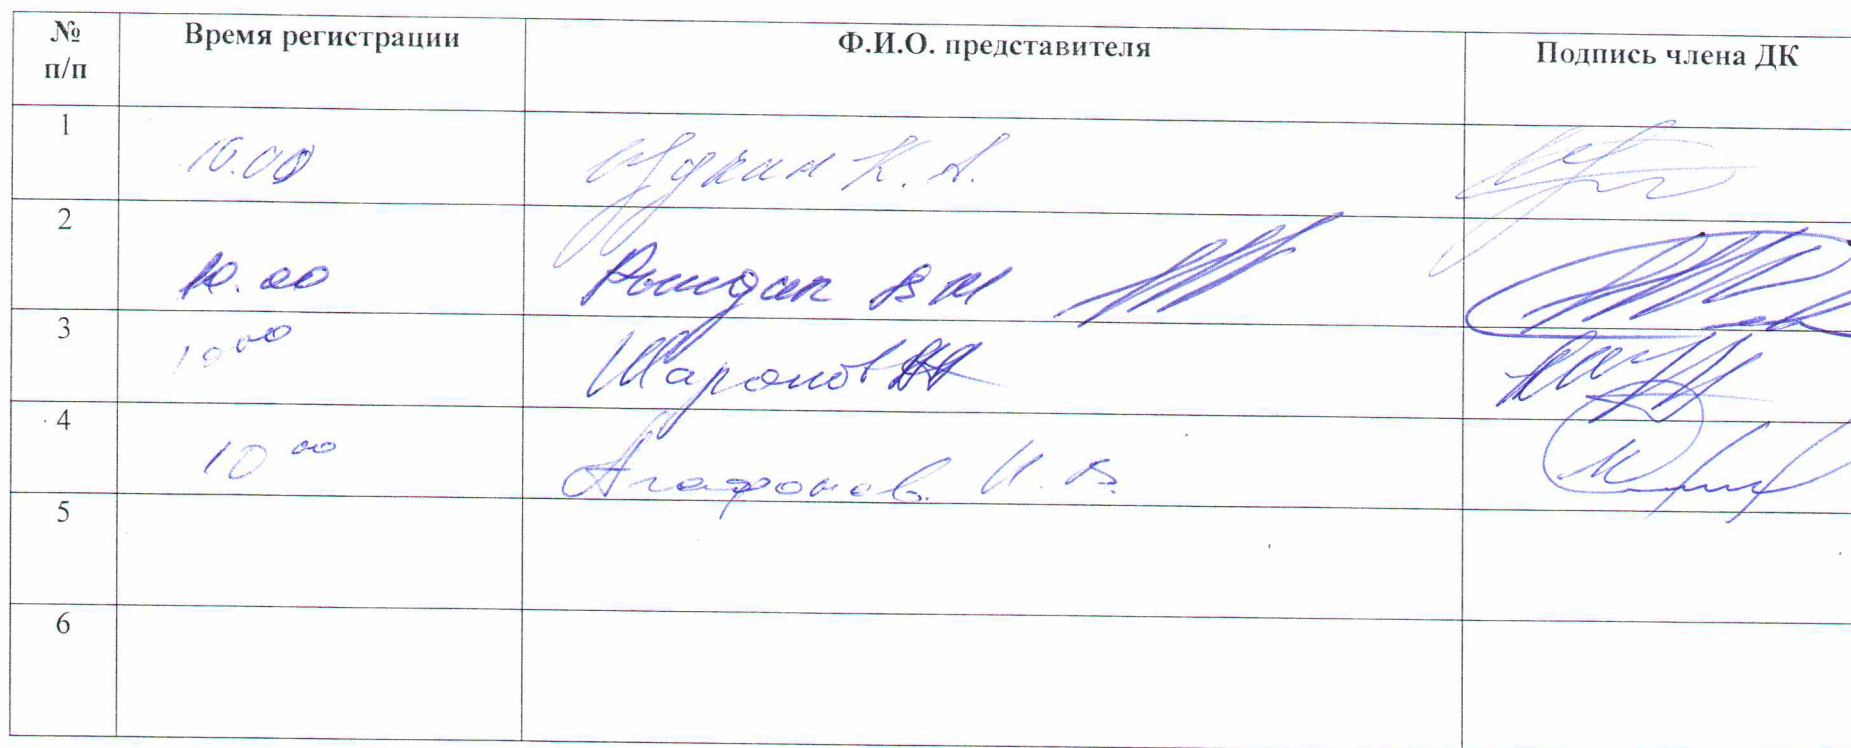 № п/п Время регистрации Ф.И.О. представителя Подпись члена ДК
1 10.00 К. А.
2 10.00 В М
3 10 00 Шаронов
4 10 00 Агафонов И. В.
5
6